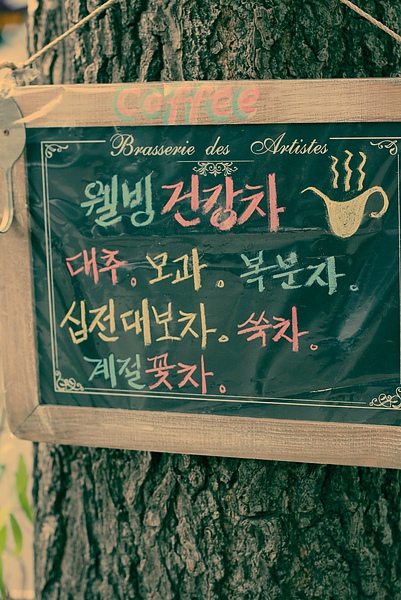 Coffee
Brasserie des Artistes
웰빙 건강차
대추。모과。복분자。
십전대보차。쑥차。
계절꽃차。